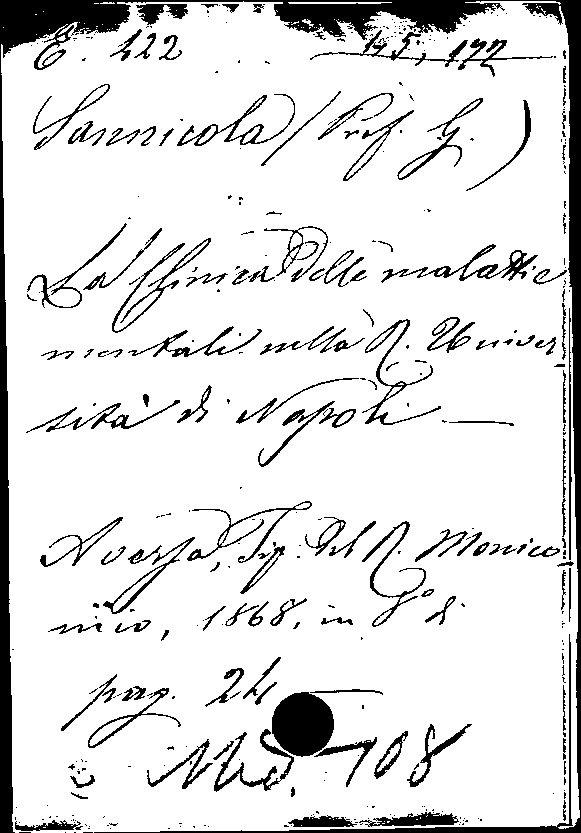 E. 422 145, 172
Sannicola (Prof. G.)
La Clinica delle malattie
mentali nella R. Univer-
sità di Napoli —
Aversa, Tip. del R. Monico-
mio, 1868, in 8° di
pag. 24
Med. 708